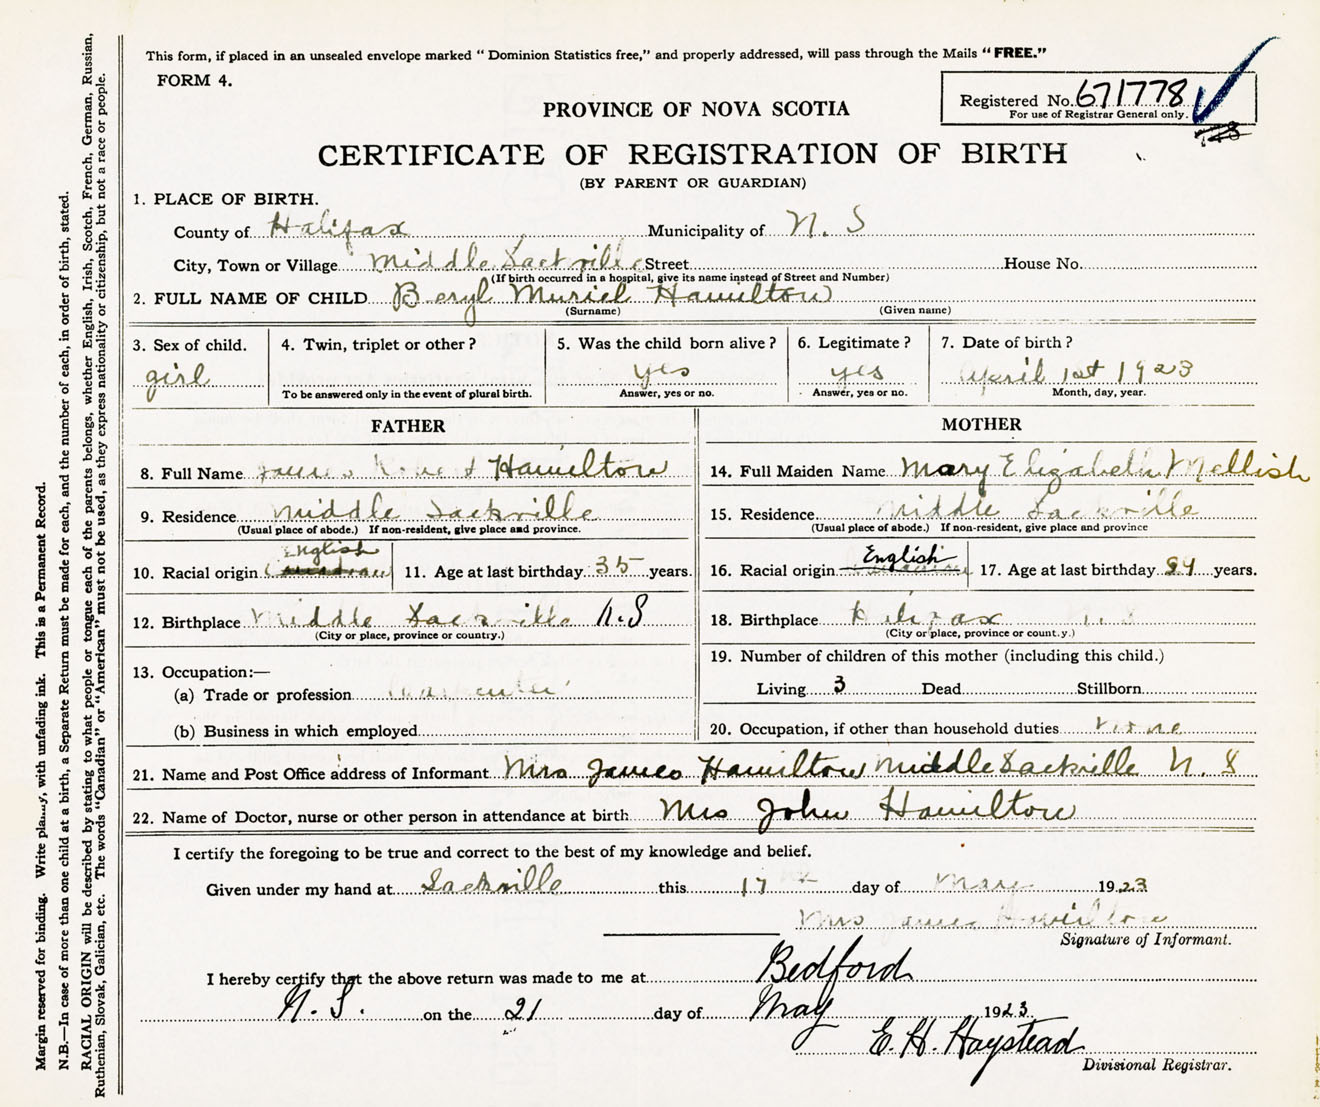 This form, if placed in an unsealed envelope marked “ Dominion Statistics free,” and properly addressed, will pass through the Mails “ FREE.”
FORM 4.
Registered No. 671778
For use of Registrar General only.
PROVINCE OF NOVA SCOTIA
CERTIFICATE OF REGISTRATION OF BIRTH
(BY PARENT OR GUARDIAN)
1. PLACE OF BIRTH.
County of Halifax Municipality of N. S
City, Town or Village Middle Sackville Street House No.
(If birth occurred in a hospital, give its name instead of Street and Number)
2. FULL NAME OF CHILD Beryl Muriel Hamilton
(Surname) (Given name)
3. Sex of child. 4. Twin, triplet or other ? 5. Was the child born alive ? 6. Legitimate ? 7. Date of birth ?
girl yes yes April 1st 1923
To be answered only in the event of plural birth. Answer, yes or no. Answer, yes or no. Month, day, year.
FATHER MOTHER
8. Full Name James Hamilton 14. Full Maiden Name Mary Elizabeth Mellish
9. Residence Middle Sackville 15. Residence Middle Sackville
(Usual place of abode.) If non-resident, give place and province. (Usual place of abode.) If non-resident, give place and province
10. Racial origin English Canadian 11. Age at last birthday 35 years. 16. Racial origin English 17. Age at last birthday years.
12. Birthplace Middle Sackville N.S 18. Birthplace Halifax N.S
(City or place, province or country.) (City or place, province or count.y.)
19. Number of children of this mother (including this child.)
13. Occupation:—
(a) Trade or profession Carpenter Living 3 Dead Stillborn
(b) Business in which employed 20. Occupation, if other than household duties None
21. Name and Post Office address of Informant Mrs James Hamilton Middle Sackville N. S
22. Name of Doctor, nurse or other person in attendance at birth Mrs John Hamilton
I certify the foregoing to be true and correct to the best of my knowledge and belief.
Given under my hand at Sackville this 17 day of May 1923
Mrs James Hamilton
Signature of Informant.
I hereby certify that the above return was made to me at Bedford
N. S. on the 21 day of May 1923
E. H. Haystead
Divisional Registrar.
Margin reserved for binding. Write plainly, with unfading ink. This is a Permanent Record.
N.B.—In case of more than one child at a birth, a Separate Return must be made for each, and the number of each, in order of birth, stated.
RACIAL ORIGIN will be described by stating to what people or tongue each of the parents belongs, whether English, Irish, Scotch, French, German, Russian,
Ruthenian, Slovak, Galician, etc. The words “Canadian” or “American” must not be used, as they express nationality or citizenship, but not a race or people.